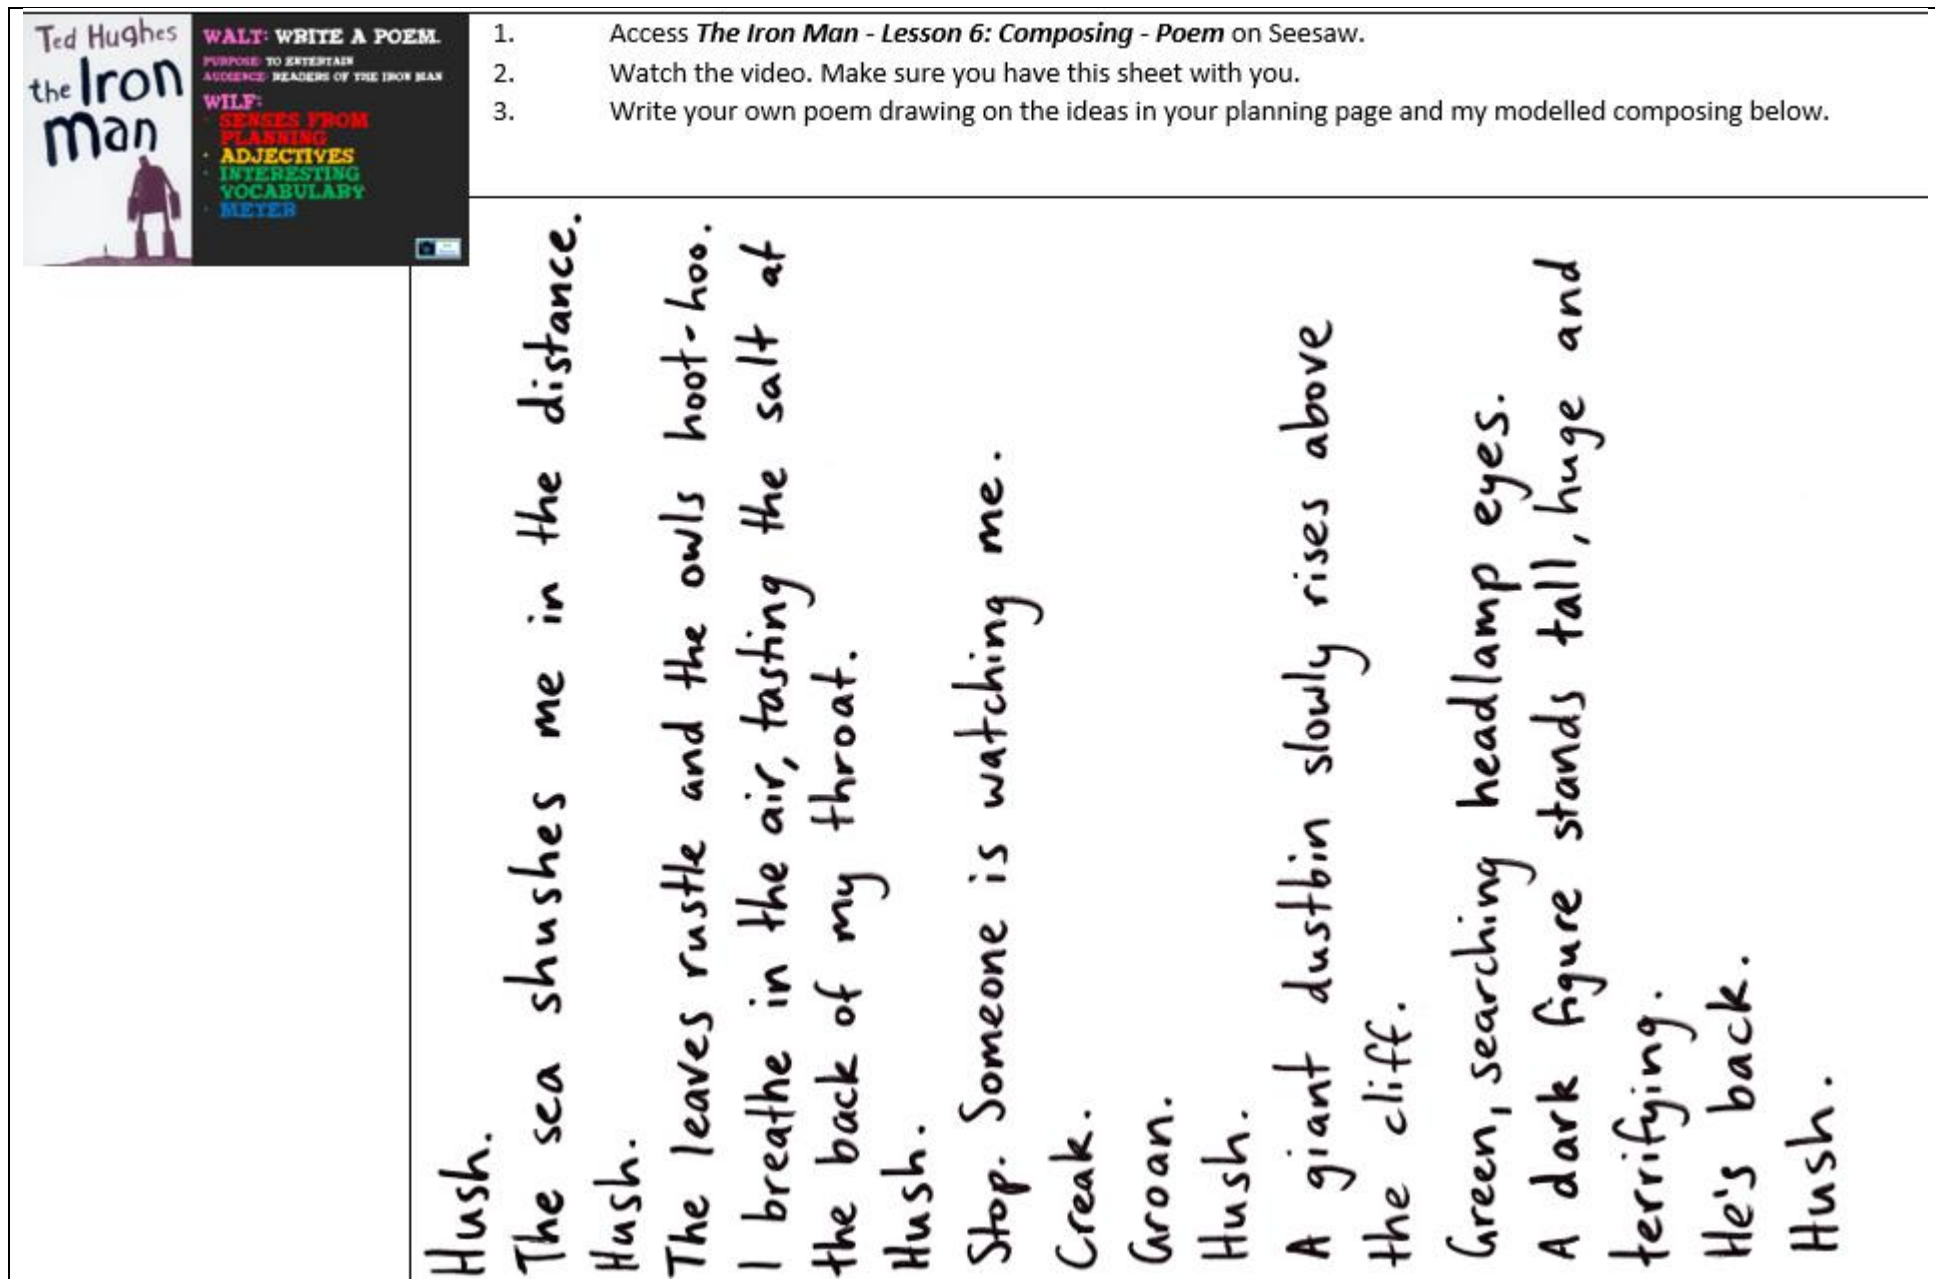 Ted Hughes
the Iron
man
WALT: WRITE A POEM.
PURPOSE: TO ENTERTAIN
AUDIENCE: READERS OF THE IRON MAN
WILF:
· SENSES FROM
PLANNING
· ADJECTIVES
· INTERESTING
VOCABULARY
· METER
1. Access The Iron Man - Lesson 6: Composing - Poem on Seesaw.
2. Watch the video. Make sure you have this sheet with you.
3. Write your own poem drawing on the ideas in your planning page and my modelled composing below.
Hush.
The sea shushes me in the distance.
Hush.
The leaves rustle and the owls hoot-hoo.
I breathe in the air, tasting the salt at
the back of my throat.
Hush.
Stop. Someone is watching me.
Creak.
Groan.
Hush.
A giant dustbin slowly rises above
the cliff.
Green, searching headlamp eyes.
A dark figure stands tall, huge and
terrifying.
He's back.
Hush.